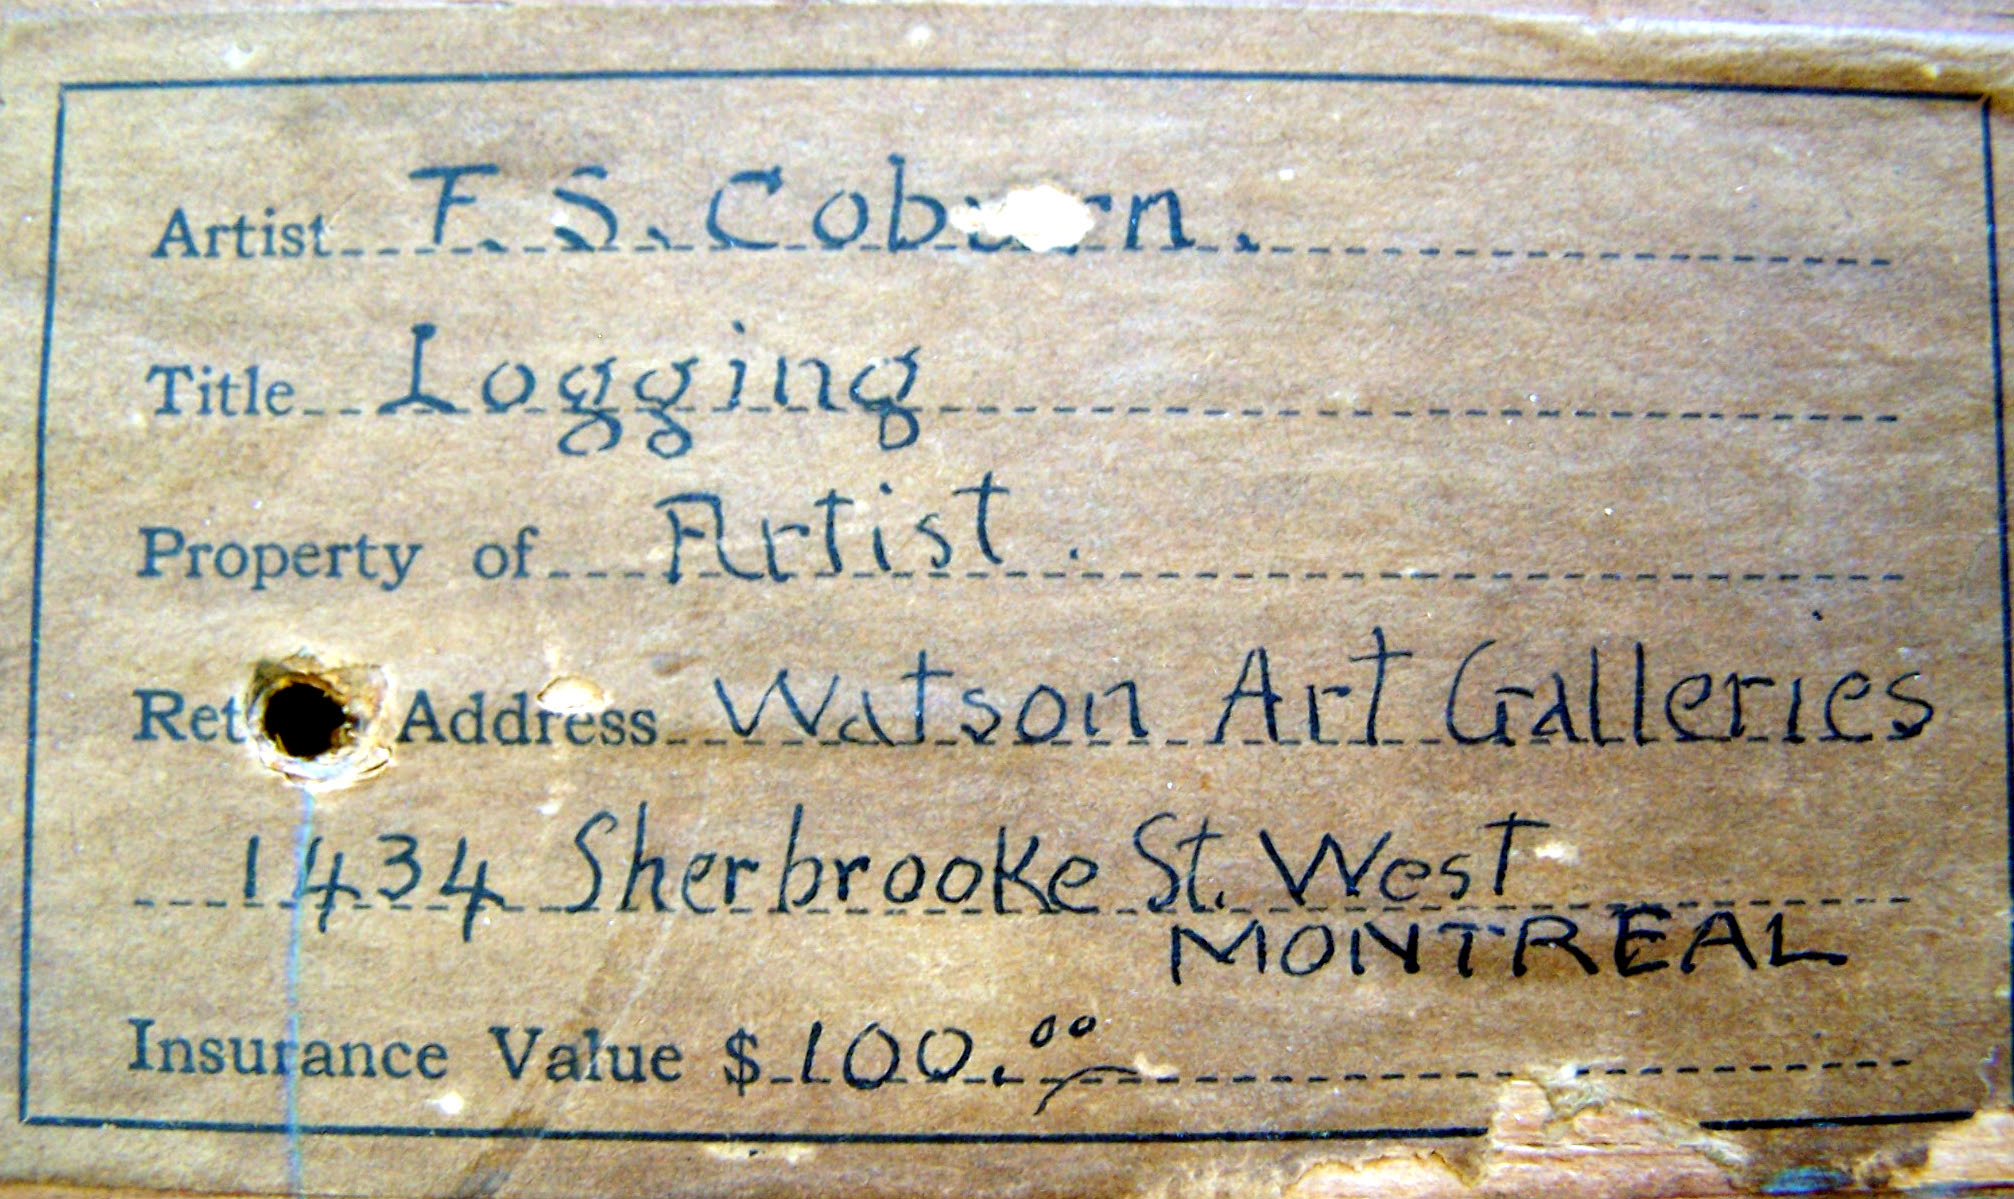 Artist F. S. Coburn.
Title Logging
Property of Artist.
Address Watson Art Galleries
1434 Sherbrooke St. West
MONTREAL
Insurance Value $ 100.00